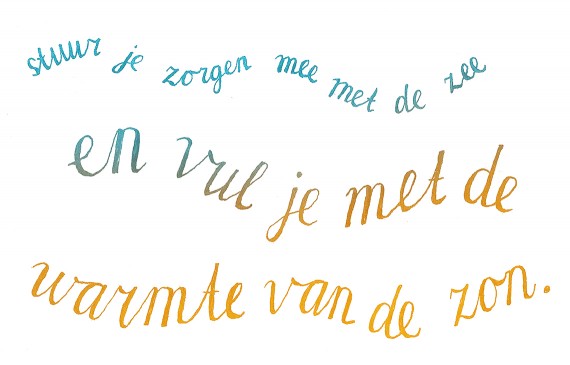 stuur je zorgen mee met de zee
en vul je met de
warmte van de zon.